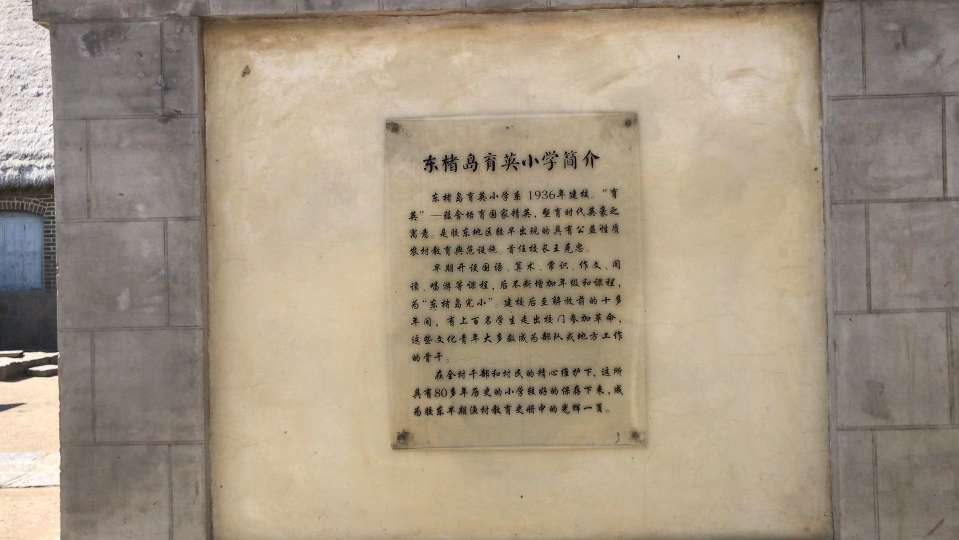 东楮岛育英小学简介
东楮岛育英小学系 1936年建校。“育
英”—蕴含培育国家精英，塑育时代英豪之
寓意。是胶东地区较早出现的具有公益性质
农村教育典范设施。首任校长王克忠。
早期开设国语、算术、常识、作文、阅
读、唱游等课程，后不断增加年级和课程，
为“东楮岛完小”。建校后至解放前的十多
年间，有上百名学生走出校门参加革命，
这些文化青年大多数成为部队或地方工作
的骨干。
在全村干部和村民的精心维护下，这所
具有80多年历史的小学较好的保存下来，成
为胶东早期渔村教育史册中的光辉一页。